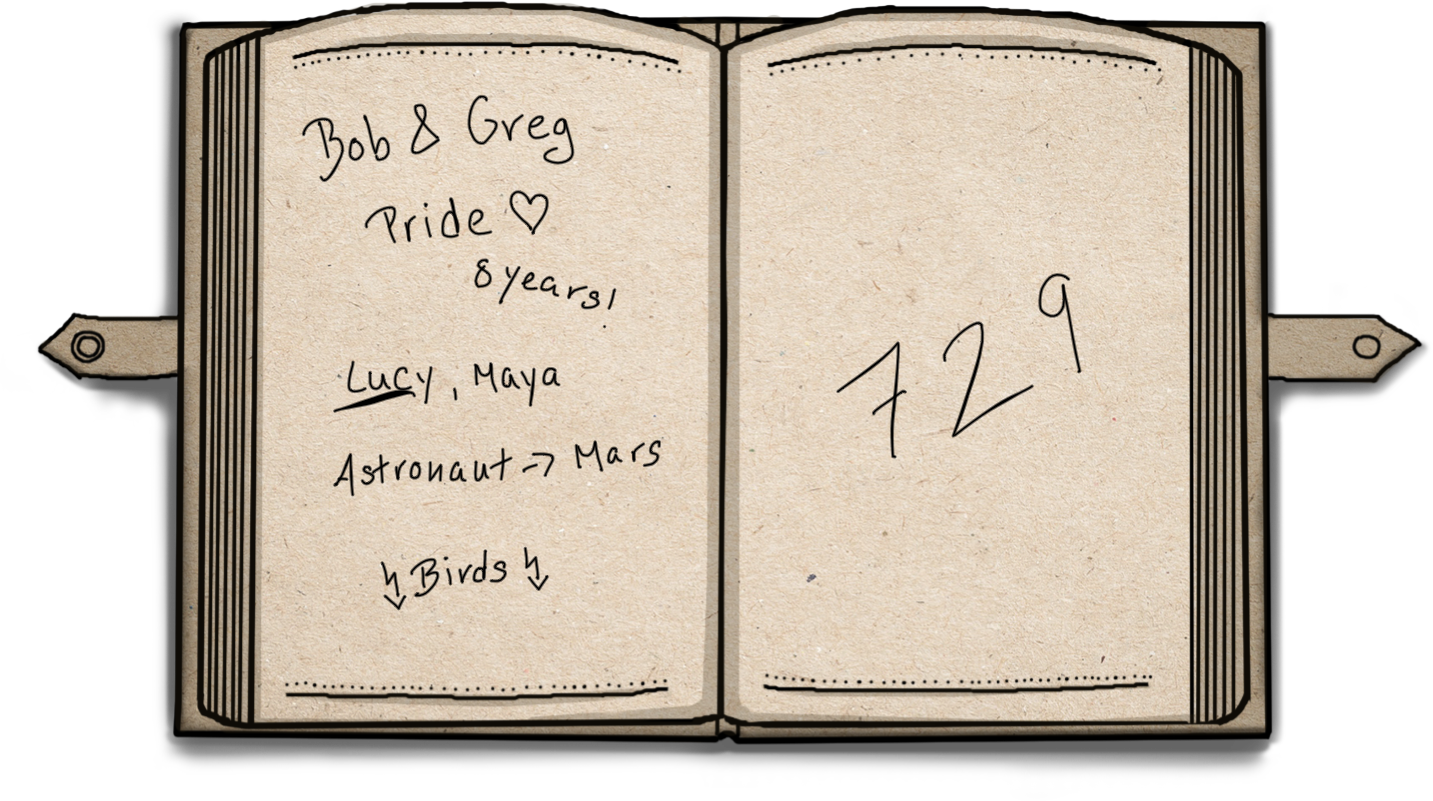 Bob & Greg
Pride ♡
8 years!
Lucy, Maya
Astronaut -> Mars
Birds
729